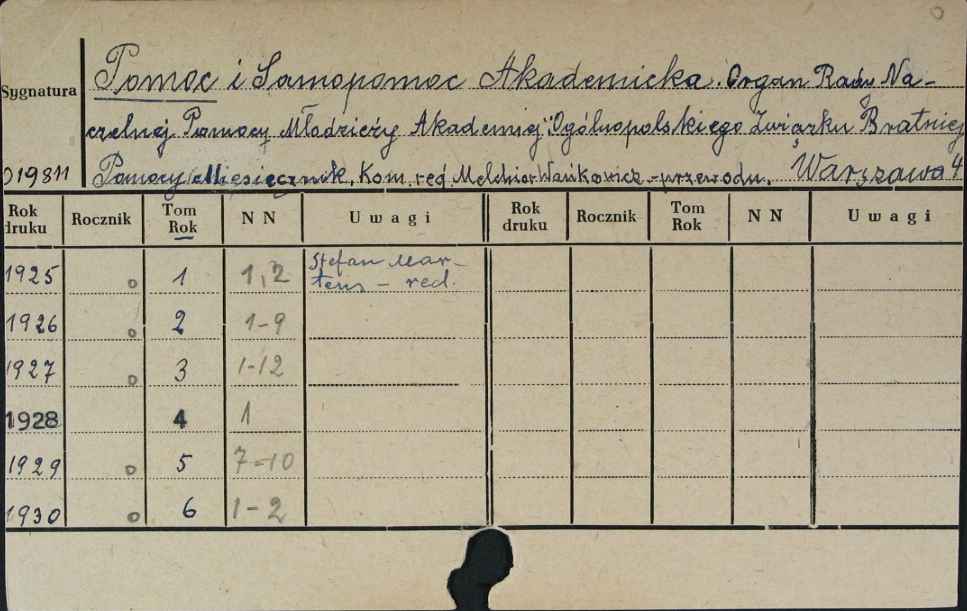 Pomoc i Samopomoc Akademicka. Organ Rady Na-
Sygnatura
czelnej Pomocy Młodzieży Akademiej, Ogólnopolskiego Związku Bratniej
019811 Pomocy Miesięcznik. Kom. red. Melchior Wańkowicz - przewodn. Warszawa 4
Rok druku Rocznik Tom Rok NN Uwagi Rok druku Rocznik Tom Rok NN Uwagi
1925 o 1 1,2 Stefan Mar-
tens - red.
1926 o 2 1-9
1927 o 3 1-12
1928 4 1
1929 o 5 7-10
1930 o 6 1-2